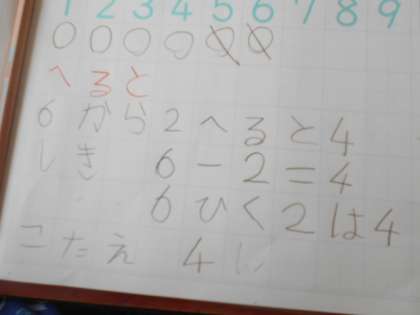 1 2 3 4 5 6 7 8 9
へると
6から2へると4
しき 6-2=4
6ひく2は4
こたえ 4